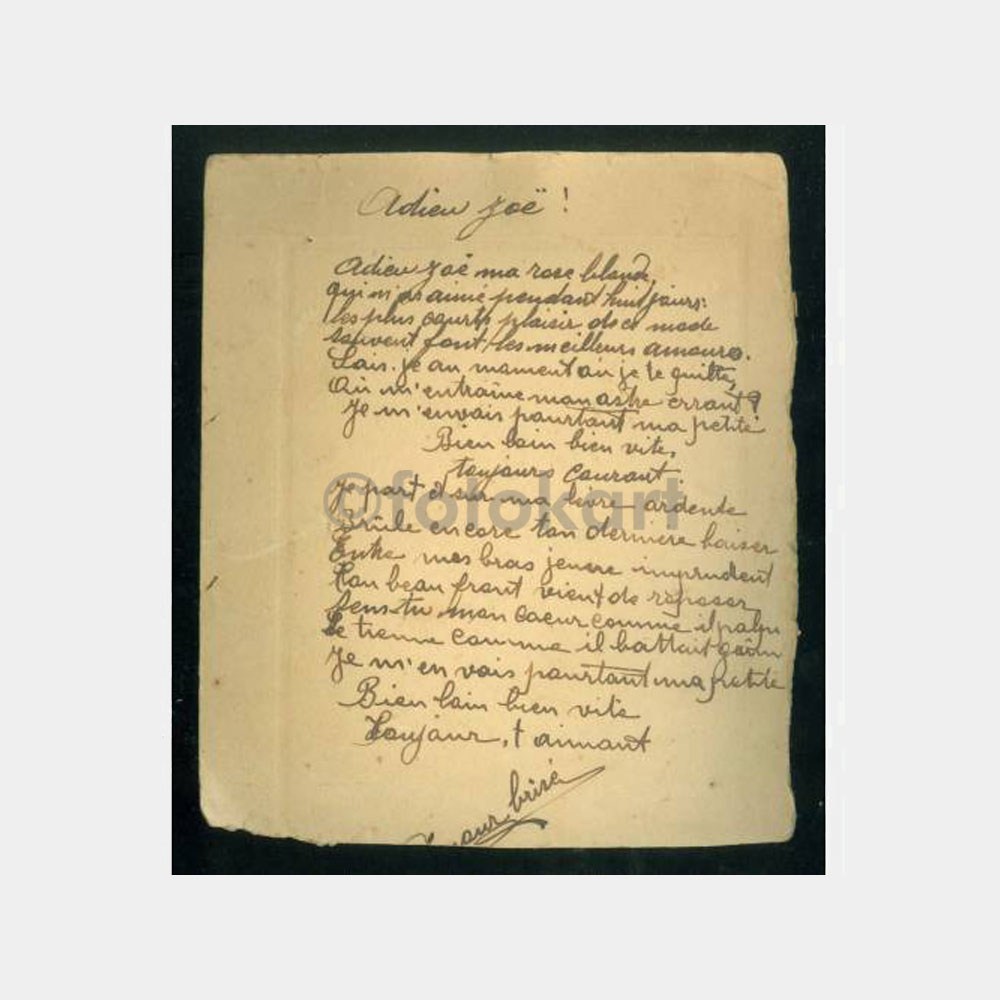 Adieu Zoë !
Adieu Zoë ma rose blonde,
qui m'as aimé pendant huit jours:
les plus courts plaisir de ce mode
souvent font les meilleurs amours.
Sais-je au moment ou je te quitte,
Où m'entraîne mon astre errant?
Je m'en vais pourtant ma petite
Bien loin bien vite,
toujours Courant
©fotokart
Je part et sur ma lèvre ardente
Brûle encore ton dernière baiser
Entre mes bras jeune imprudent
Ton beau front vient de reposer
Sens-tu mon coeur comme il palpi
Le tienne comme il battait
Je m'en vais pourtant ma petite
Bien loin bien vite
Toujour, t aimant
brisé